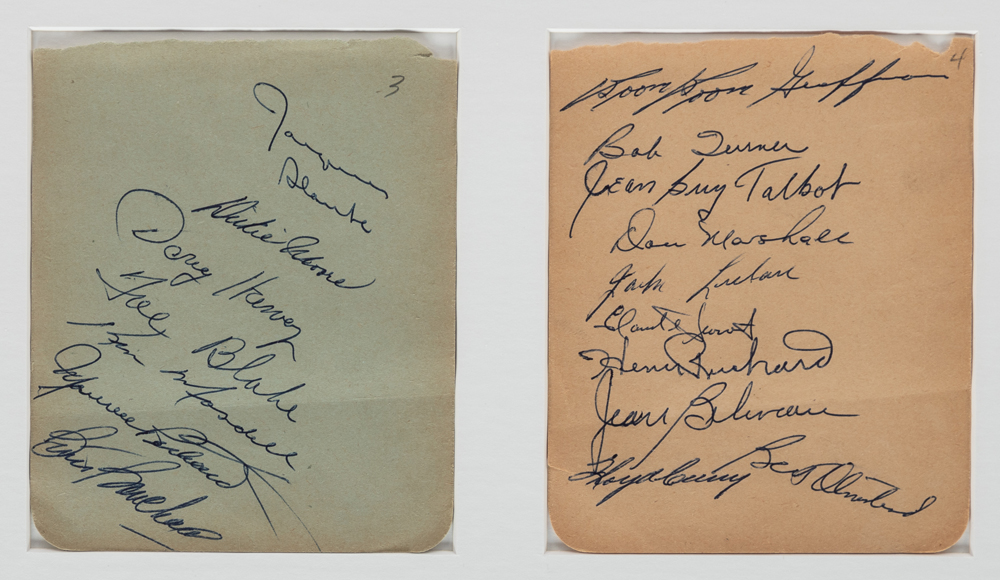 3
Jacques
Plante
Dickie Moore
Doug Harvey
Toe Blake
Ken Mosdell
Maurice Richard
Butch Bouchard
4
Boom Boom Geoffrion
Bob Turner
Jean Guy Talbot
Don Marshall
Jack
Claude Provost
Henri Richard
Jean Beliveau
Bert Olmstead
Floyd Curry